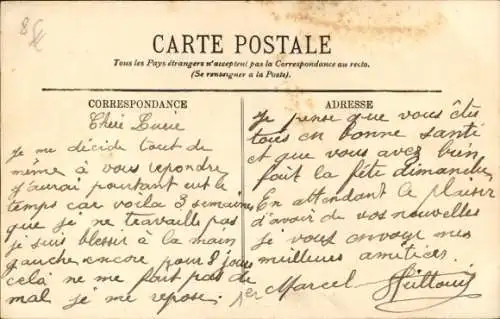 CARTE POSTALE
Tous les Pays étrangers n'acceptent pas la Correspondance au recto.
(Se renseigner a la Poste).
CORRESPONDANCE
Chère Lucie
Je me décide tout de
même à vous repondre
j'aurai pourtant eut le
temps car voila 3 semaines
que je ne travaille pas
je suis blessir à la main
gauche encore pour 8 jours
celà ne me fait pas de
mal je me repose.
ADRESSE
Je pense que vous êtes
tous en bonne santé
et que vous avez bien
fait la fête dimanche.
En attendant le plaisir
d'avoir de vos nouvelles
je vous envoye mes
meilleures amitiées.
Marcel